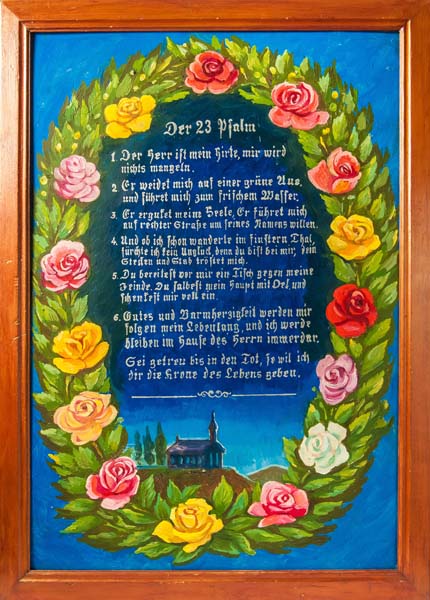 Der 23 Psalm
1. Der Herr ist mein Hirte, mir wird
nichts mangeln.
2. Er weidet mich auf einer grüne Aue.
und führet mich zum frischem Wasser.
3. Er erquket meine Seele. Er führet mich
auf rechter Straße um seines Namens willen.
4. Und ob ich schon wanderte im finstern Thal,
fürchte ich kein Unglück, denn du bist bei mir, dein
Stecken und Stab tröstet mich.
5. Du bereitest vor mir ein Tisch gegen meine
Feinde. Du salbest mein Haupt mit Oel, und
schenkest mir voll ein.
6. Gutes und Barmherzigkeit werden mir
folgen mein Lebenlang, und ich werde
bleiben im Hause des Herrn immerdar.
Sei getreu bis in den Tot, so wil ich
dir die Krone des Lebens geben.